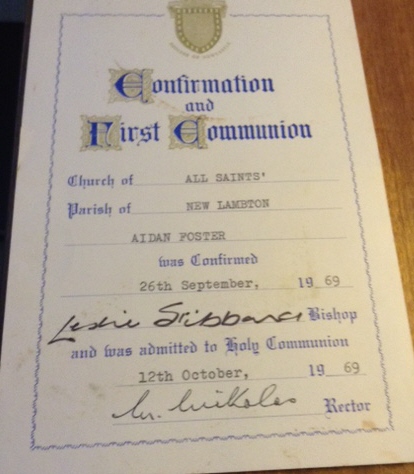 Confirmation
and
First Communion
Church of ALL SAINTS'
Parish of NEW LAMBTON
AIDAN FOSTER
was Confirmed
26th September, 19 69
Leslie Stibbard Bishop
and was admitted to Holy Communion
12th October, 19 69
Rector